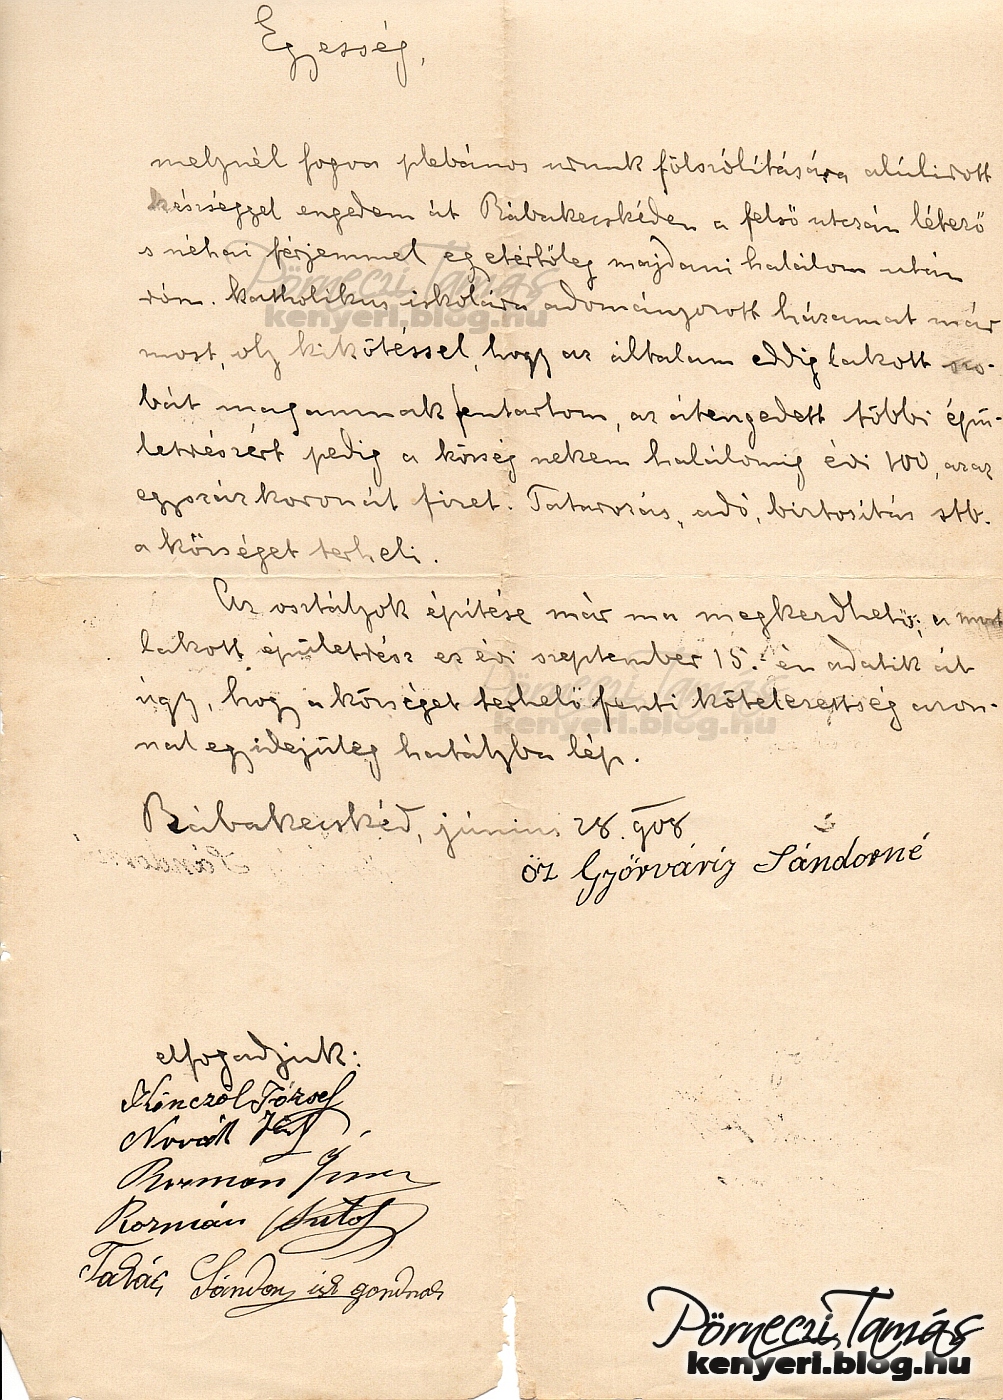 Egesség,
melynél fogva plebános urunk fölszólítására alúlirott
készséggel engedem át Rábakecskéden a felső utcán létező
s néhai férjemmel egyetértőleg majdani halálom után
róm. katholikus iskolára adományozott házamat már
most, oly kikötéssel, hogy az általam eddig lakott szo-
bát magamnak fentartom, az átengedett többi épü-
letrészért pedig a község nekem halálomig évi 100, azaz
egyszáz koronát fizet. Tatarozás, adó, biztosítás stb.
a községet terheli.
Az osztályok építése már ma megkezdhető; a most
lakott épületrész ez évi szeptember 15.-én adatik át
úgy, hogy a községet terhelő fenti kötelezettség azon-
nal egyidejűleg hatályba lép.
Rábakecskéd, június 28. 908
öz Győrváriy Sándorné
elfogadjuk:
Könczöl József
Novák
Rozman
Rozmán Antal
Takács Sándor isk gondnok
Pörneczi Tamás
kenyeri.blog.hu
Pörneczi Tamás
kenyeri.blog.hu
Pörneczi Tamás
kenyeri.blog.hu